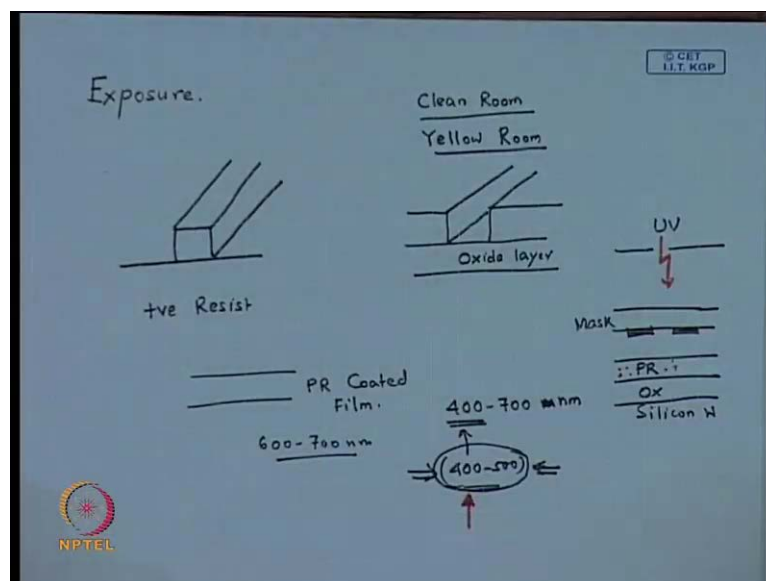 © CET
I.I.T. KGP
Exposure.
Clean Room
Yellow Room
Oxide layer
+ve Resist
UV
Mask
PR
OX
Silicon W
PR Coated
Film.
400-700 nm
600-700 nm
(400-500)
NPTEL